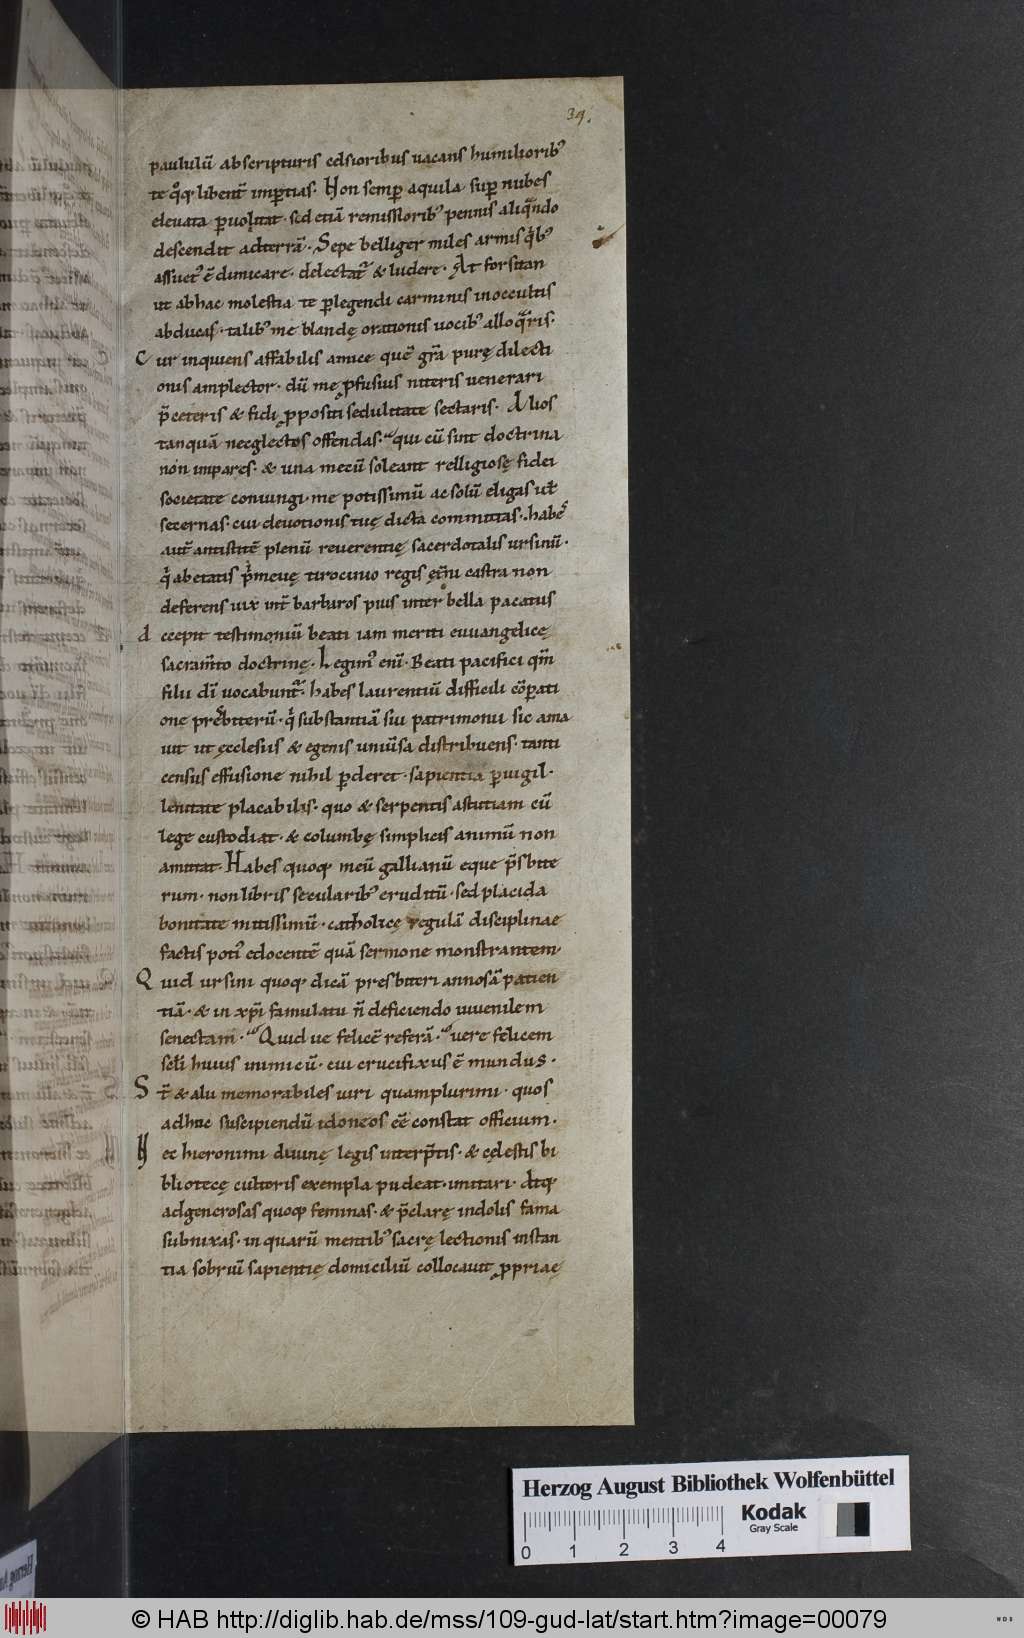 39.
paululū abscripturis celsioribus uacans humilioribꝰ
te qͦqꝫ libent̄ imꝑtias. Non semꝑ aquila suꝑ nubes
eleuata ꝑuolitat. sed etiā remissioribꝰ pennis aliqn̄do
descendit adterrā. Sepe belliger miles armis qͥbꝰ
assuetꝰ ē dimicare. delectat̄ & ludere. At forsitan
ut abhac molestia te ꝑlegendi carminis inoccultis
abducas. talibꝰ me blandę orationis uocibꝰ alloqͣris.
C ur inquiens affabilis amice quē gr̄a purę dilecti
onis amplector. dū me ꝓfusius niteris uenerari
p̄ceteris & fidi ꝓpositi sedulitate sectaris. Alios
tanquā necglectos offendas. qui cū sint doctrina
non impares. & una mecū soleant relligiosę fidei
societate coniungi. me potissimū ac solū eligas ut̄
secernas. cui deuotionis tuę dicta committas. habeſ
aut̄ antistitē plenū reuerentię sacerdotalis ursinū.
qͥ abetatis pͥmeuę tirocinio regis ęt̄ni castra non
deferens uix int̄ barbaros pius inter bella pacatus
A ccepit testimoniū beati iam meriti euuangelicę
sacram̄to doctrinę. Legimꝰ eni. Beati pacifici qm̄
filii dī uocabunt̄. habes laurentiū difficili cōparati
one presb̄iterū. qͥ substantiā sui patrimonii sic ama
uit ut ęcclesiis & egenis uniūsa distribuens. tanti
census effusione nihil ꝑderet. sapientia ꝑuigil.
lenitate placabilis. quo & serpentis astutiam cū
lege custodiat. & columbę simplicis animū non
amittat. Habes quoqꝫ meū gallianū eque p̄sbite
rum. nonlibris secularibꝰ eruditū. sed placida
bonitate mitissimū. catholicę regulā disciplinae
factis potiꝰ edocentē quā sermone monstrantem.
Q uid ursini quoqꝫ dicā presbiteri annosā patien
tiā. & in xp̄i famulatu n̄ deficiendo iuuenilem
senectam. Quid ue felicē referā. uere felicem
scl̄i huius inimicū. cui crucifixus ē mundus.
S t̄ & alii memorabiles uiri quamplurimi. quos
adhuc suscipiendū idoneos eē constat officium.
N ec hieronimi diuinę legis interp̄tis. & cęlestis bi
bliotecę cultoris exempla pudeat. imitari. Atqꝫ
adgenerosas quoqꝫ feminas. & p̄clarę indolis fama
subnixas. in quarū mentibꝰ sacrę lectionis instan
tia sobriū sapientię domiciliū collocauit ꝓpriaę
Herzog August Bibliothek Wolfenbüttel
Kodak
Gray Scale
0 1 2 3 4
© HAB http://diglib.hab.de/mss/109-gud-lat/start.htm?image=00079